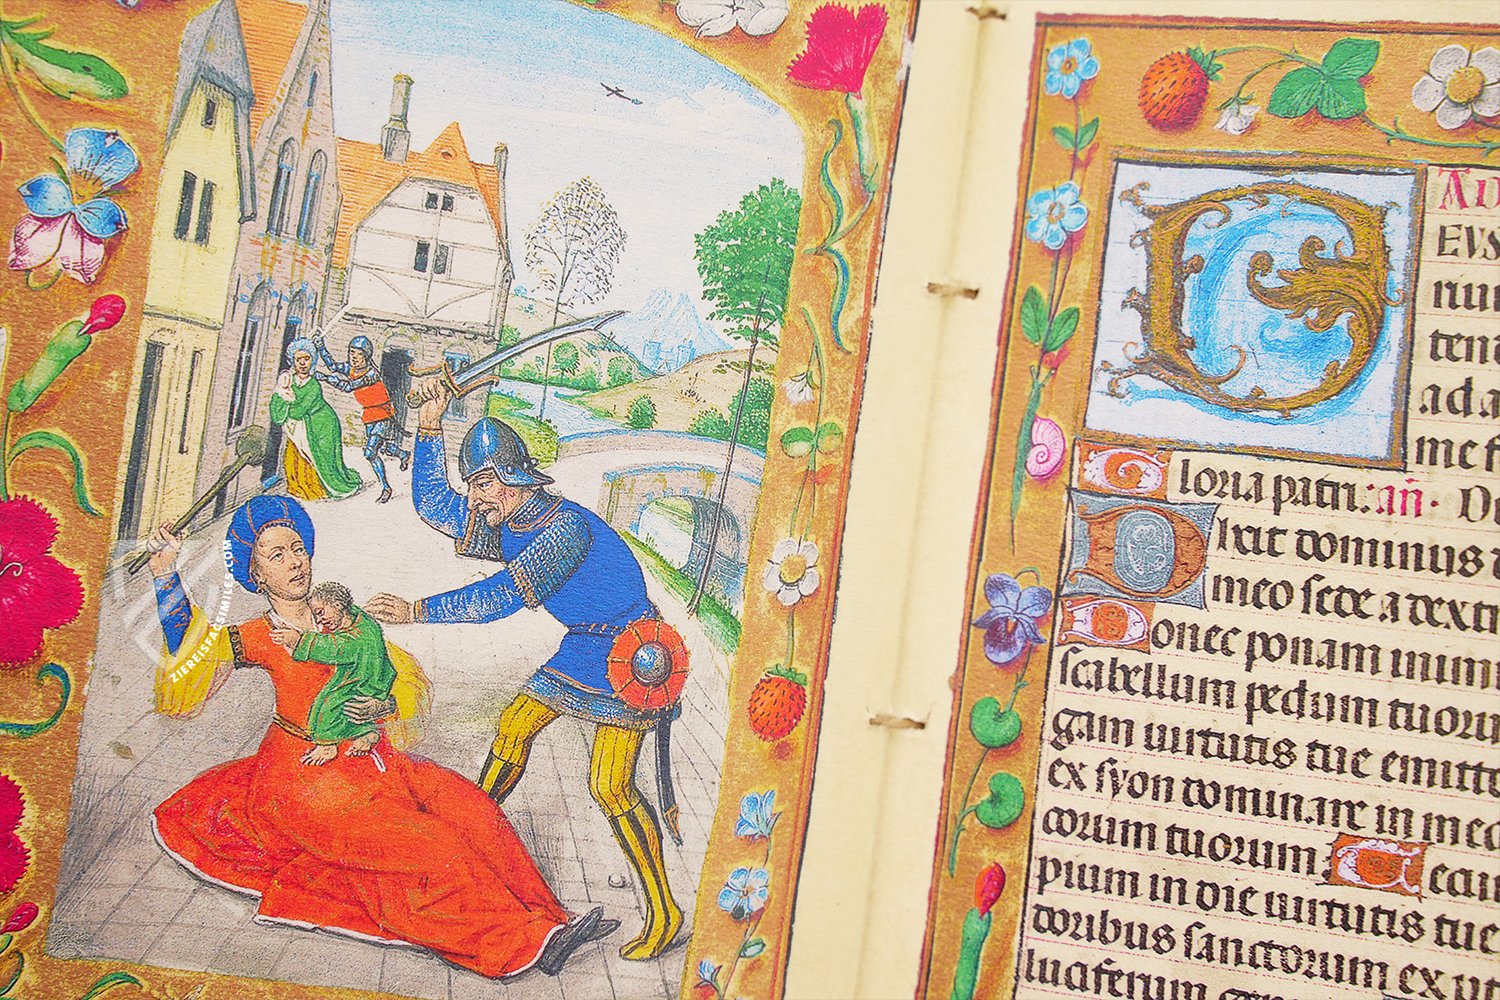 ZIEREISFACSIMILES.COM
EVS
ad a
me f
loria patri: añ. D
ixit dominus d
meo sede a dextr
onec ponam inimi
scabellum pedum tuoru
gam uirtutis tue emitte
ex syon dominare in med
corum tuorum Tecum
pium in die uirtutis tue
doribus sanctorum ex ut
luciferum gen